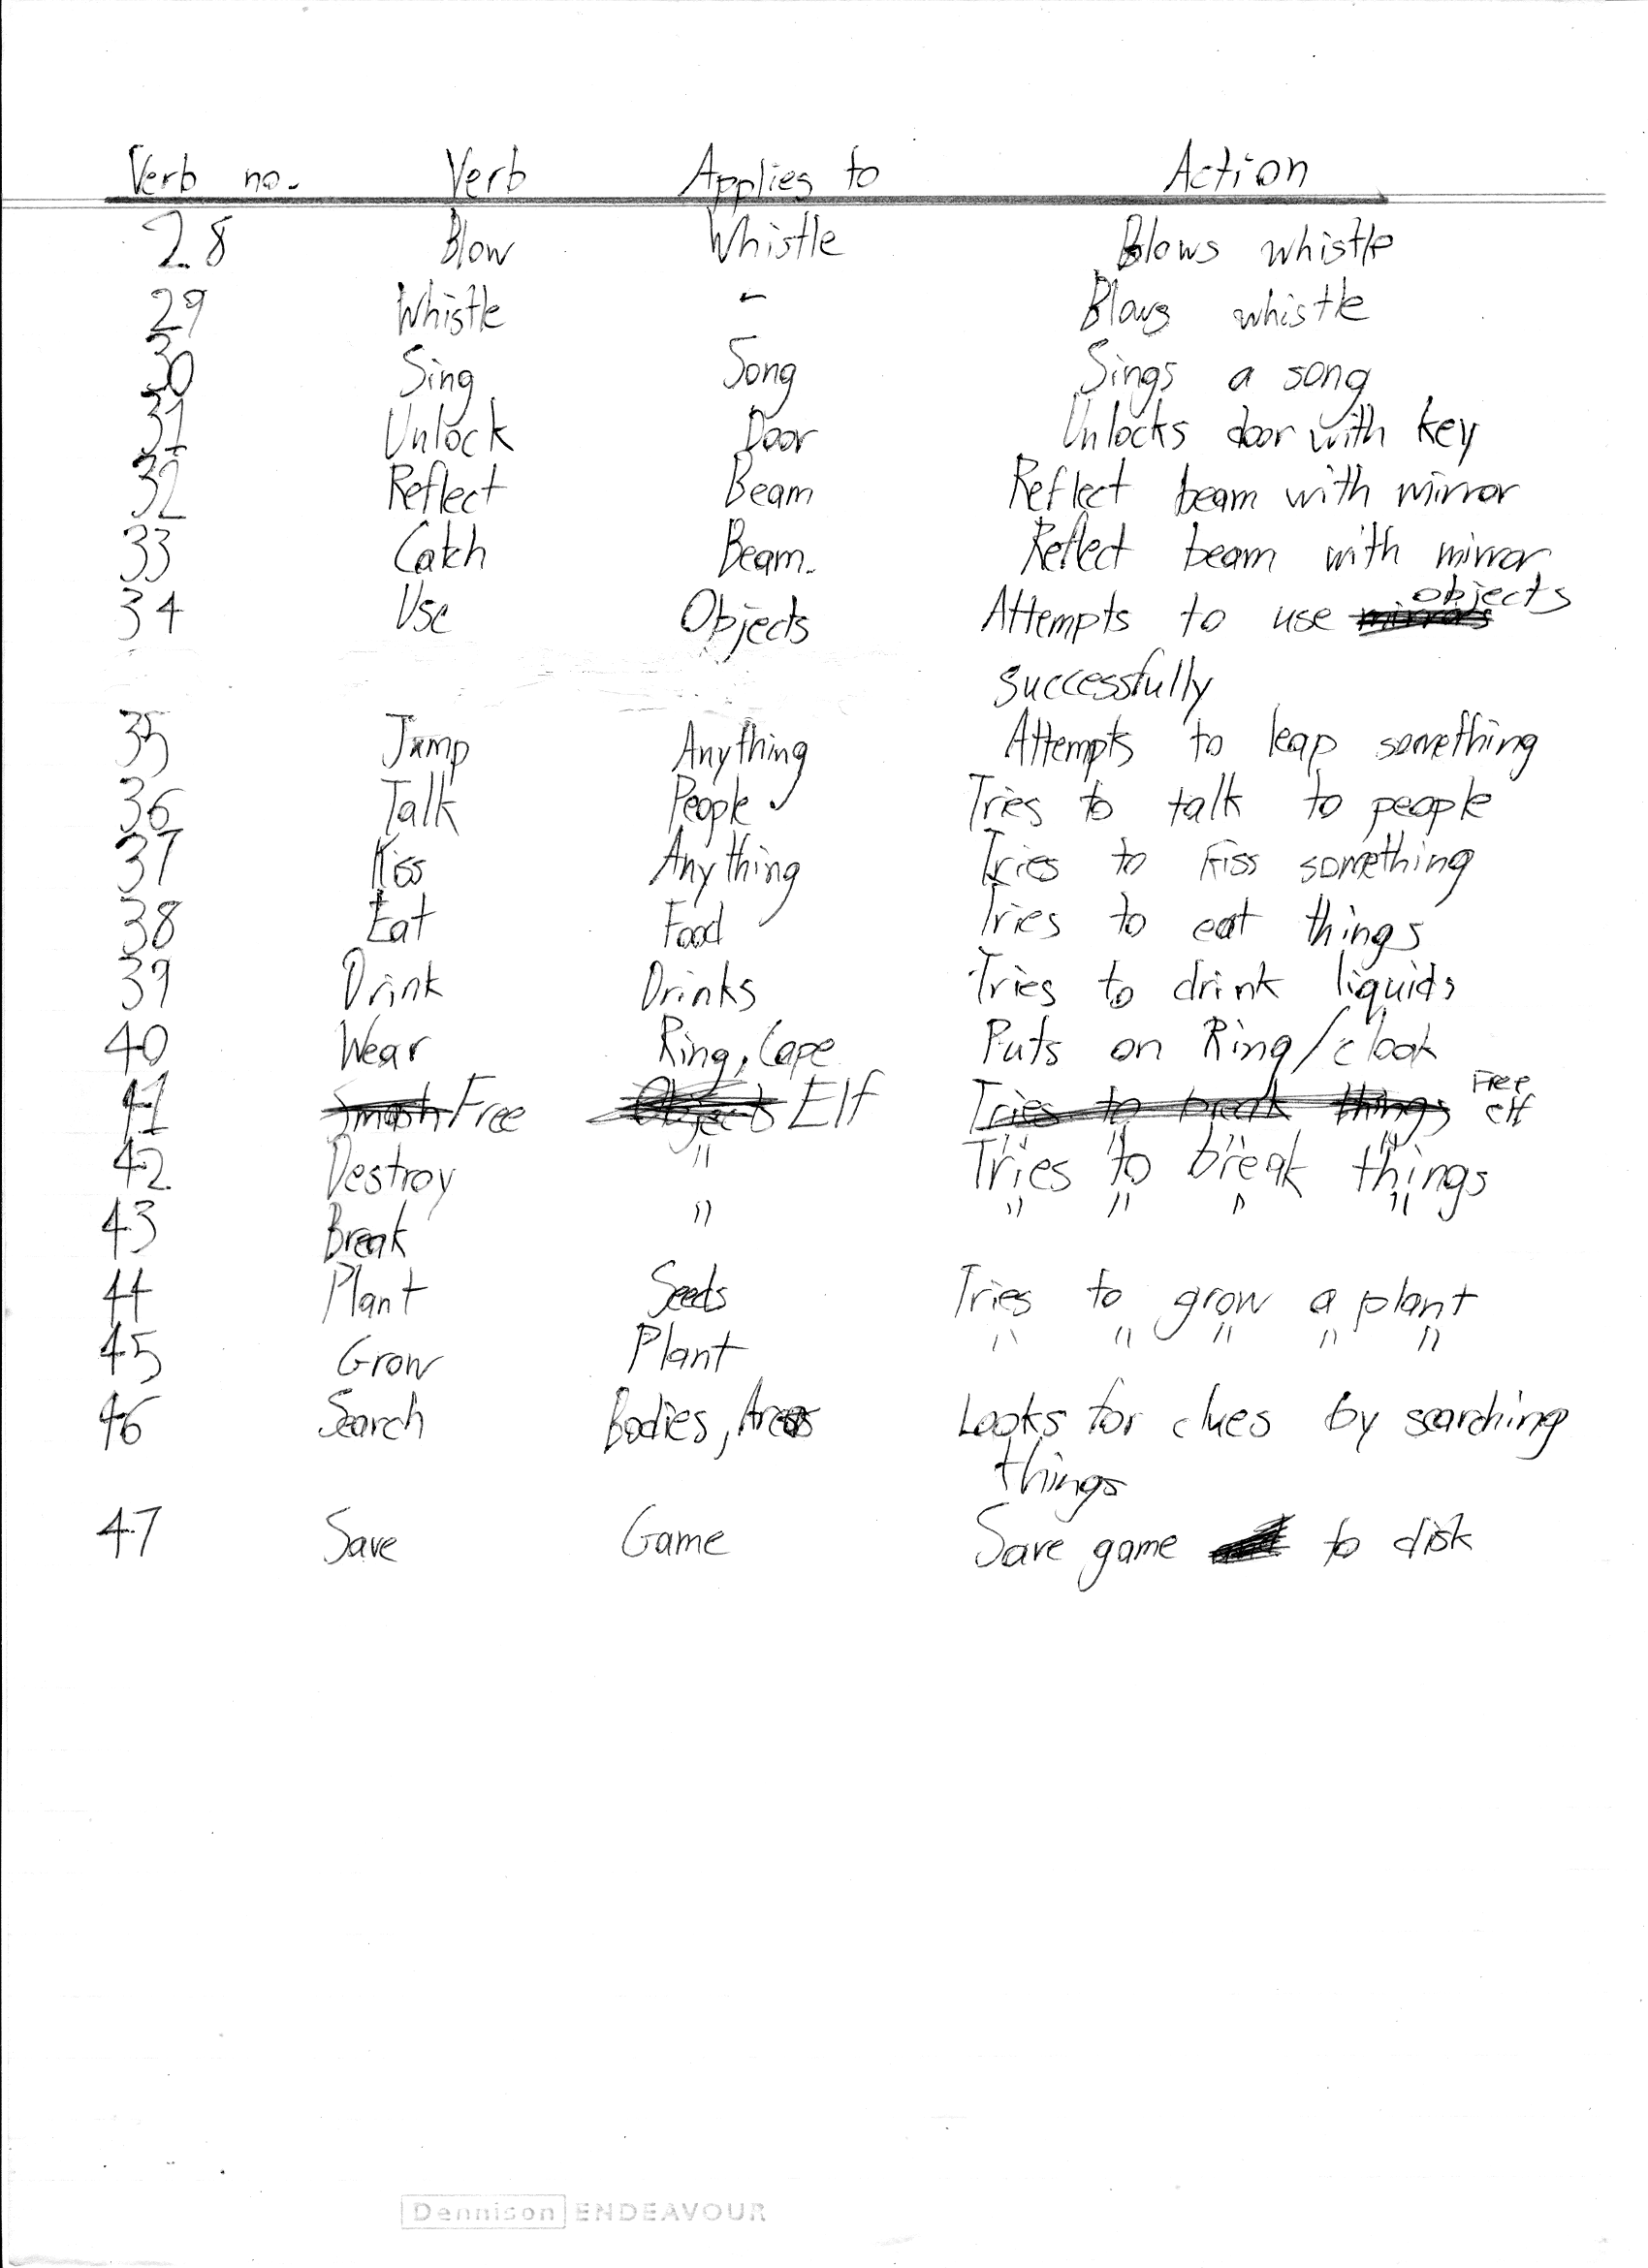 Verb no. Verb Applies to Action
28 Blow Whistle Blows whistle
29 Whistle - Blows whistle
30 Sing Song Sings a song
31 Unlock Door Unlocks door with key
32 Reflect Beam Reflect beam with mirror
33 Catch Beam. Reflect beam with mirror
34 Use Objects Attempts to use mirrors objects
successfully
35 Jump Anything Attempts to leap something
36 Talk People Tries to talk to people
37 Kiss Anything Tries to Kiss something
38 Eat Food Tries to eat things
39 Drink Drinks Tries to drink liquids
40 Wear Ring, Cape Puts on Ring/cloak
41 Smash Free Objects Elf Tries to break things Free elf
42 Destroy " Tries to break things
43 Break " " " " "
44 Plant Seeds Tries to grow a plant
45 Grow Plant " " " " "
46 Search Bodies, Areas Looks for clues by searching
things
47 Save Game Save game to disk
Dennison ENDEAVOUR